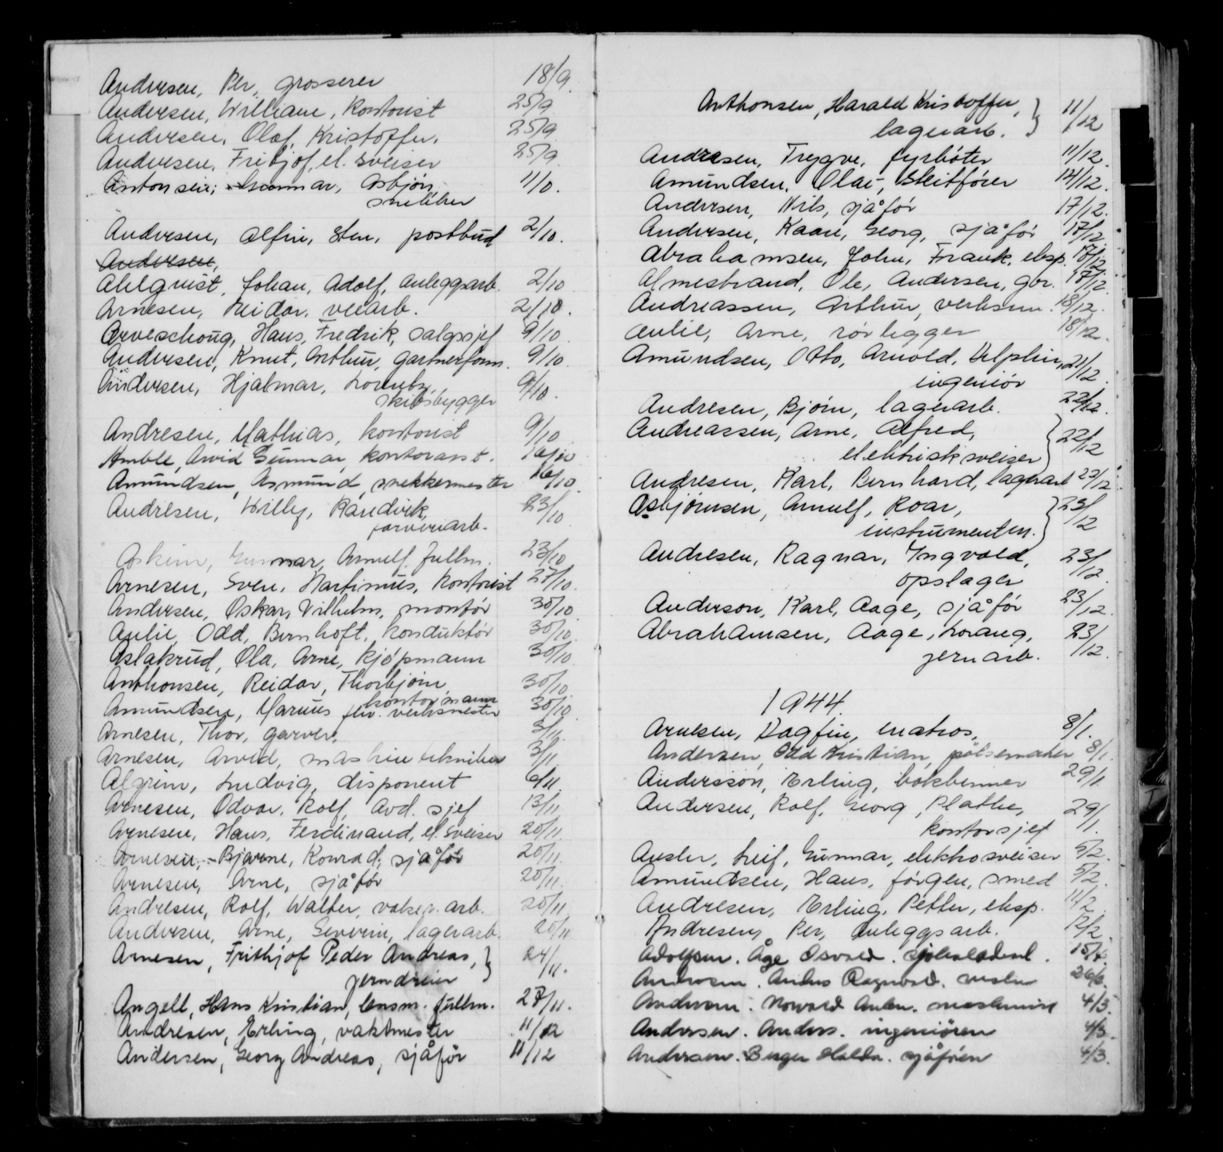 Andersen, Per, grosserer 18/9.
Andersen, William, kontorist 25/9
Andersen, Olaf, Kristoffer, 25/9
Andersen, Fritjof, el. sveiser 25/9
Antonsen, Gunnar, Asbjørn 11/0.
snekker
Andersen, Alfin, Sten, postbud 2/10.
Andersen,
Ahlquist, Johan, Adolf, anleggsarb 2/10
Arnesen, Reidar, veiarb. 2/10.
Arveschoug, Hans, Fredrik, salgssjef 9/10.
Andersen, Knut, Arthur, gartnerform. 9/10.
Andersen, Hjalmar, Lorentz, 9/10.
skibsbygger
Andresen, Mathias, kontorist 9/10
Amble, Arvid Gunnar, kontorasst. 16/10
Amundsen, Asmund, snekkermester 16/10
Andresen, Willy, Randvik, 23/10
farveriarb.
Askim, Gunnar, Arnulf, fullm. 23/10
Arnesen, Sven, Martinius, kontorist 27/10.
Andersen, Oskar, Vilhelm, montør 30/10
Aulie, Odd, Bernhoft, konduktør 30/10.
Aslakrud, Ola, Arne, kjøpmann 30/10.
Anthonsen, Reidar, Thorbjørn, 30/10.
kontormann
Amundsen, Marius, elv. verksmester 30/10
Arnesen, Thor, garver, 3/11
Arnesen, Arvid, maskintekniker 3/11
Algrim, Ludvig, disponent 6/11
Arnesen, Odvar, Rolf, avd. sjef 13/11
Arnesen, Hans, Ferdinand, el. sveiser 20/11
Arnesen, Bjarne, Konrad, sjåfør 20/11.
Arnesen, Arne, sjåfør 20/11
Andresen, Rolf, Walter, valsev. arb. 20/11
Andersen, Arne, Severin, lagerarb. 20/11
Arnesen, Frithjof Peder Andreas, } 24/11.
jerndreier
Angell, Hans Kristian, lensm. fullm. 28/11.
Andresen, Erling, vaktmester 11/12
Andersen, Georg Andreas, sjåfør 11/12
Anthonsen, Harald Kristoffer, } 11/12
lagerarb.
Andresen, Trygve, fyrbøter 11/12.
Amundsen, Olai, skiftfører 14/12.
Andersen, Nils, sjåfør 17/12.
Andersen, Kaare, Georg, sjåfør 17/12
Abrahamsen, John, Frank, eksp. 17/12
Almesbrand, Ole, Andersen, gbr. 17/12.
Andreassen, Arthur, verksm. 18/12.
Aulie, Arne, rørlegger 18/12.
Amundsen, Otto, Arnold, Delphin, 21/12.
ingeniør
Andresen, Bjørn, lagerarb. 22/12.
Andreassen, Arne, Alfred, } 22/12
elektrisk sveiser
Andresen, Karl, Bernhard, lagerarb 23/12.
Asbjørnsen, Arnulf, Roar, } 23/12
instrumentm.
Andresen, Ragnar, Ingvald, 23/12.
opslager
Anderson, Karl, Aage, sjåfør 23/12.
Abrahamsen, Aage, Lorang, 23/12.
jernarb.
1944
Arnesen, Dagfin, matros, 8/1.
Andersen, Odd Kristian, pølsemaker 8/1.
Anderssön, Erling, bokbinner 29/1
Andersen, Rolf, Georg, Plathe, 29/1.
kontorsjef
Ausler, Leif, Gunnar, elektrosveiser 5/2.
Amundsen, Hans, Jørgen, smed 5/2.
Andresen, Erling, Petter, eksp. 11/2
Andresen, Per, anleggsarb. 12/2.
Adolfsen. Åge Osvald.
Andersen. Anders. ingeniøren 4/3.
Andersen. Birger sjåføren 4/3.